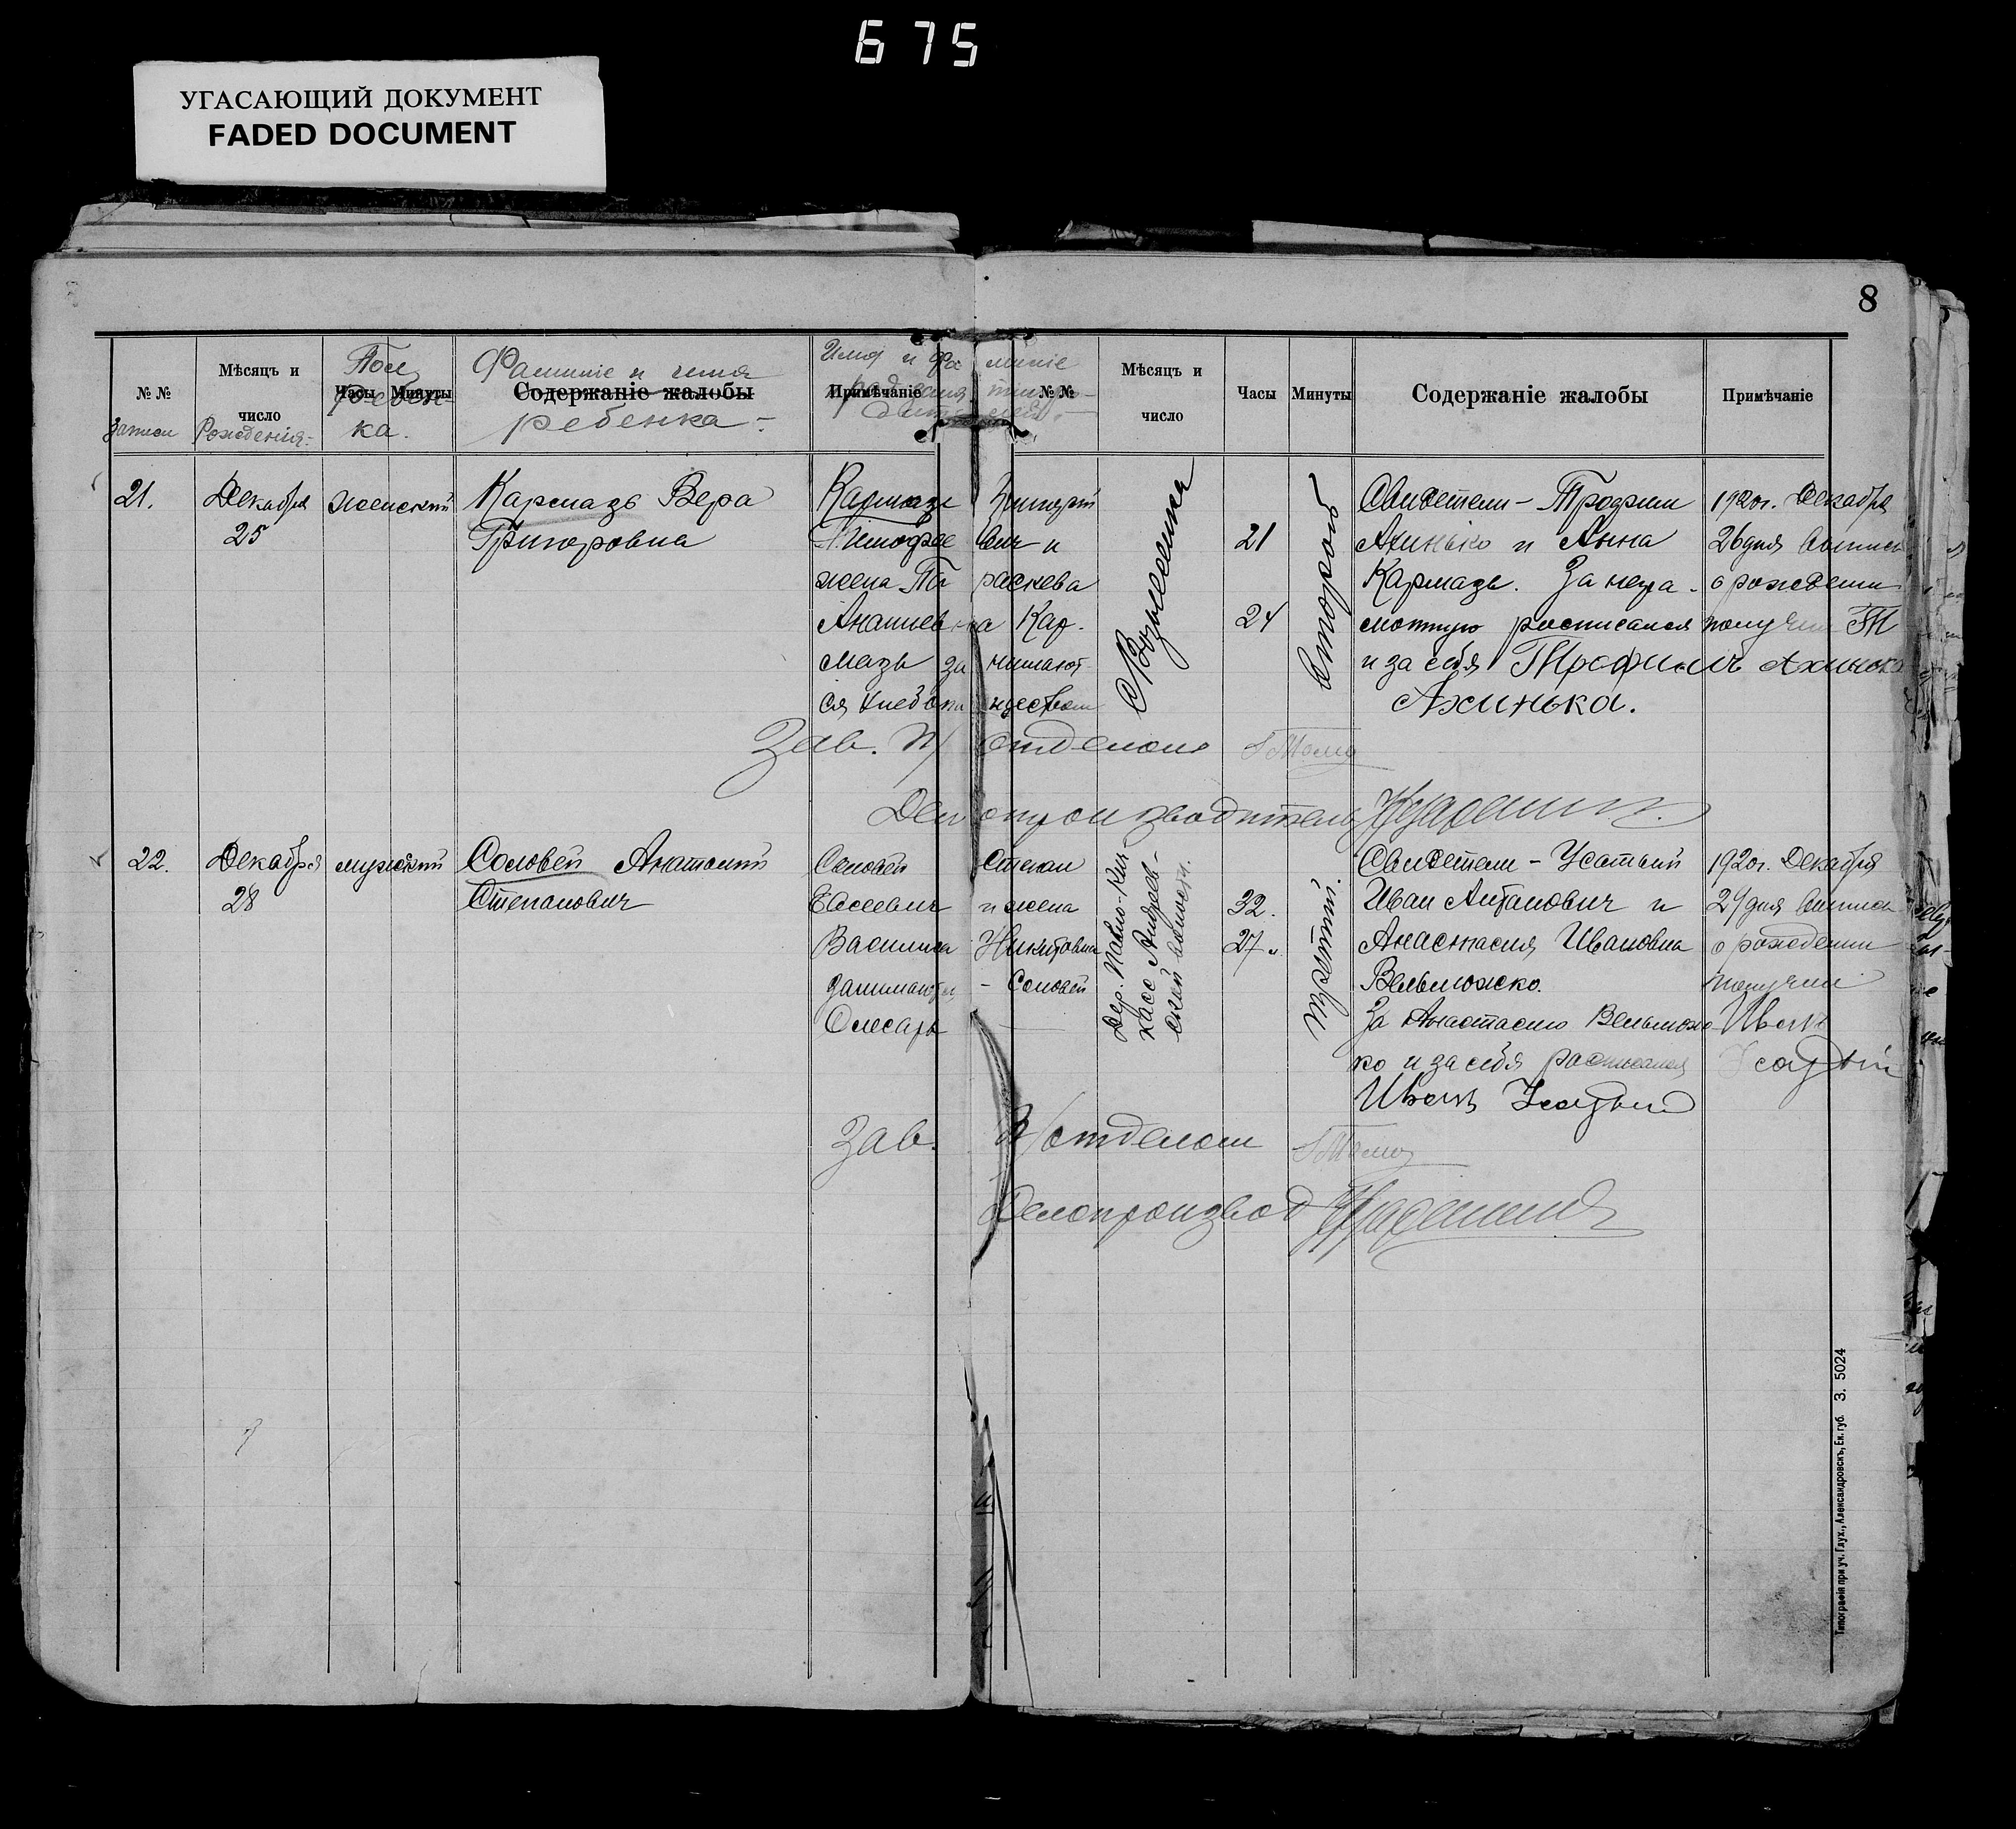 675
УГАСАЮЩИЙ ДОКУМЕНТ
FADED DOCUMENT
8
№ №
записи
Мѣсяцъ и
число
Рождения
Пол
Часы Минуты
ребен-
ка.
Фамилие и имя
Содержаніе жалобы
ребенка
Имя и фа милие
Примѣчаніе
№ №
Мѣсяцъ и
число
Часы
Минуты
Содержаніе жалобы
Примѣчаніе
21.
Декабря
25
женский
Кармазь Вера
Григоровна
Кармазь Григорий
Тимофее вич и
жена Па раскева
Ананиев на Кар-
мазь за нимают-
ся хлебопа шеством
Вознесенка
21
24
второй
Свидетели - Трофим
Ахинько и Анна
Кармазь. За негра-
мотную росписался
и за себя Трофимъ Ахинька
Ахинька.
1920г. Декабря
26 дня выпись
о рождении
получил
Зав. п/ отделом
Делопроизводитель
22.
Декабря
28
мужской
Соловей Анатолий
Степанович
Соловей Степан
Евсеевич и жена
Василиса Никитовна
- Соловей
Слесарь
Дер. Павло-Кич-
касс Андреев-
ской волости.
32.
27 "
третий.
Свидетели - Усатый
Иван Антонович и
Анастасия Ивановна
Вельможко.
За Анастасию Вельмож-
ко и за себя расписался
Иванъ Усатый
1920г. Декабря
29 дня выпись
о рождении
получил
Иванъ
Усатый
Зав. п/отделом
Делопроизвод
Типографія при уч. Глух., Александровскъ, Ек. губ. З. 5024